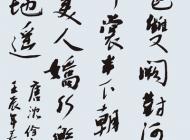 邑雙闕對河
裳半下朝
美人嬌行
地遥
唐沈佺
壬辰年